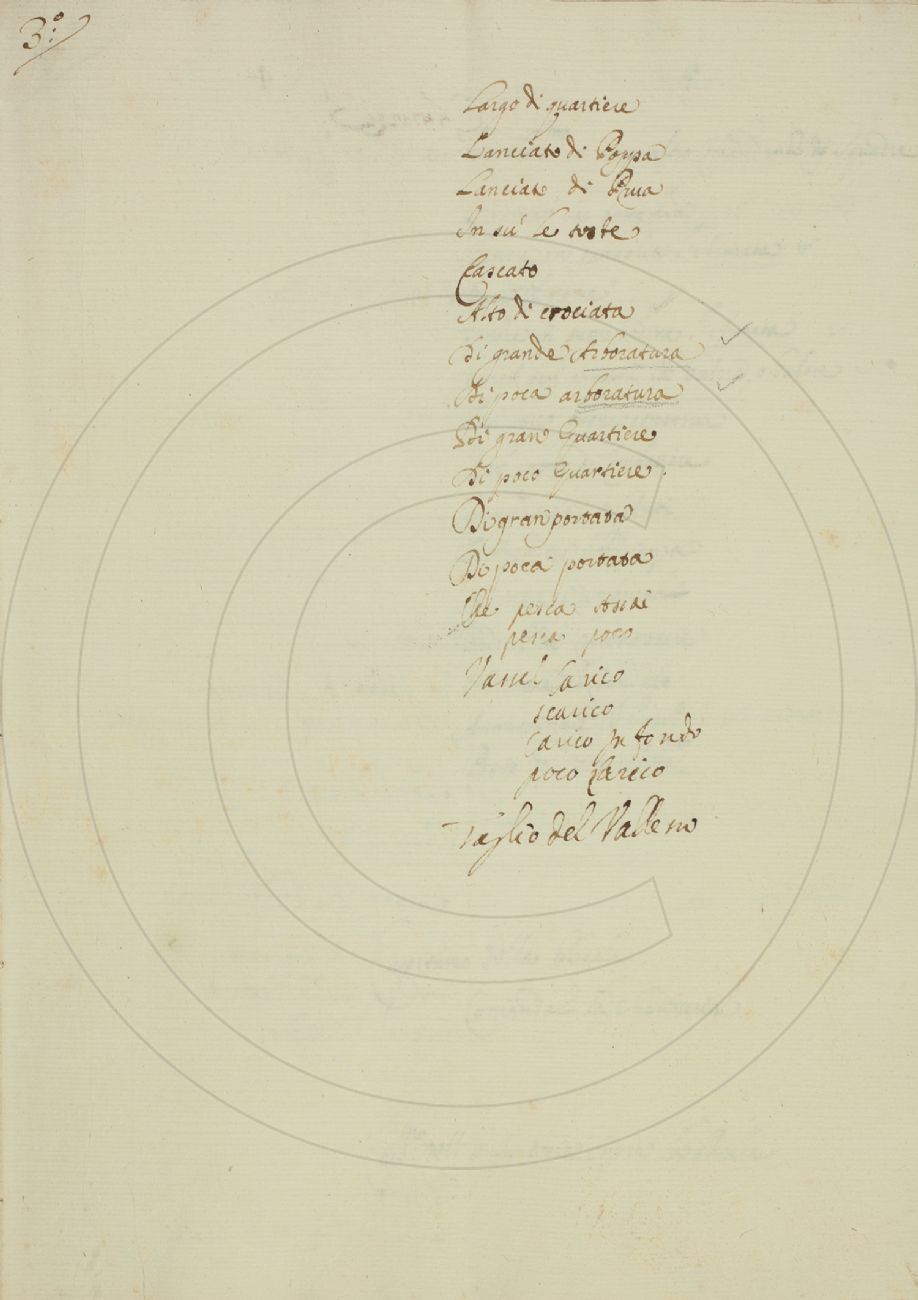 3.°
Largo di quartiere
Lanciato di Poppa
Lanciato di Prua
In sù le
Cascato
Alto di crociata
Di grande Arboratura
Di poca arboratura
Di gran Quartiere
Di poco Quartiere
Di gran portata
Di poca portata
Che pesca Assai
pesca poco
Vasel Carico
scarico
Carico in fondo
poco Carico
Taglio del